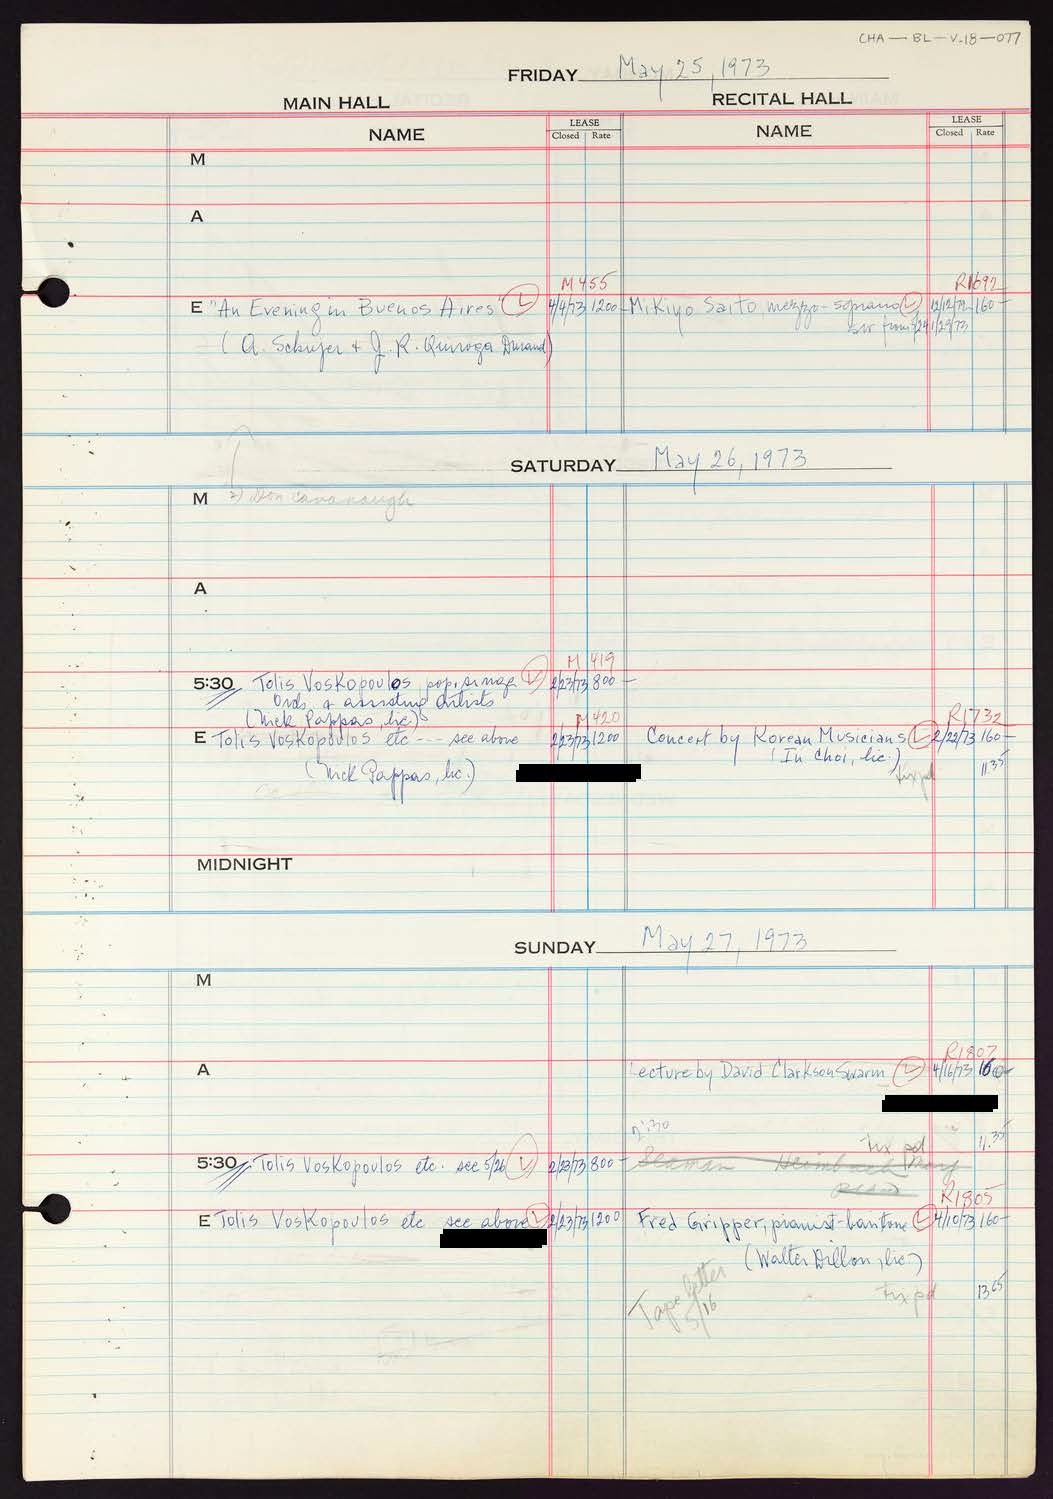 CHA — BL — V-18 — 077
FRIDAY May 25, 1973
MAIN HALL RECITAL HALL
NAME LEASE Closed Rate NAME LEASE Closed Rate
M
A
M 455 R1692
E "An Evening in Buenos Aires" L 4/4/73 1200 – Mikiyo Saito mezzo-soprano L 12/12/72 160 –
(A. Schujer & J. R. Quiroga Durand) 1/29/73
SATURDAY May 26, 1973
M 2) Don Cavanaugh
A
M 419
5:30 Tolis Voskopoulos, pop. singer L 2/23/73 800 –
Orch. & assisting artists
(Nick Pappas, lic) M 420 R1732
E Tolis Voskopoulos etc --- see above 2/23/73 1200 Concert by Korean Musicians L 2/22/73 160 –
(Nick Pappas, lic.) (In Choi, lic.)
tix pd 11.35
MIDNIGHT
SUNDAY May 27, 1973
M
R1807
A Lecture by David Clarkson Swarm L 4/16/73 160 –
2:30
tix pd 11.35
5:30 Tolis Voskopoulos etc. see 5/26 L 2/23/73 800 – Seaman Heimbach
R1805
E Tolis Voskopoulos etc see above L 2/23/73 1200 Fred Gripper, pianist-baritone L 4/10/73 160 –
(Walter Dillon, lic)
Tape letter 5/16 tix pd 13.65